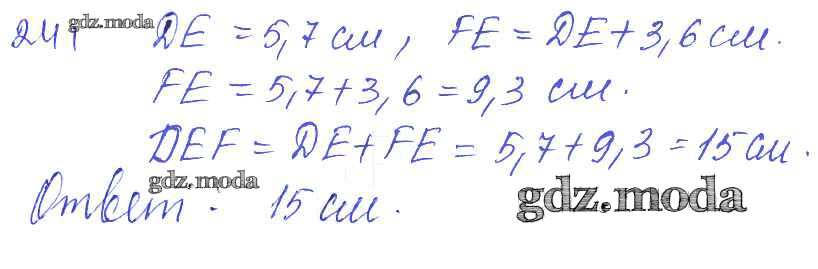 241 gdz.moda DE = 5,7 см, FE = DE + 3,6 см.
FE = 5,7 + 3,6 = 9,3 см.
DEF = DE + FE = 5,7 + 9,3 = 15 см.
gdz.moda
Ответ: 15 см.
gdz.moda